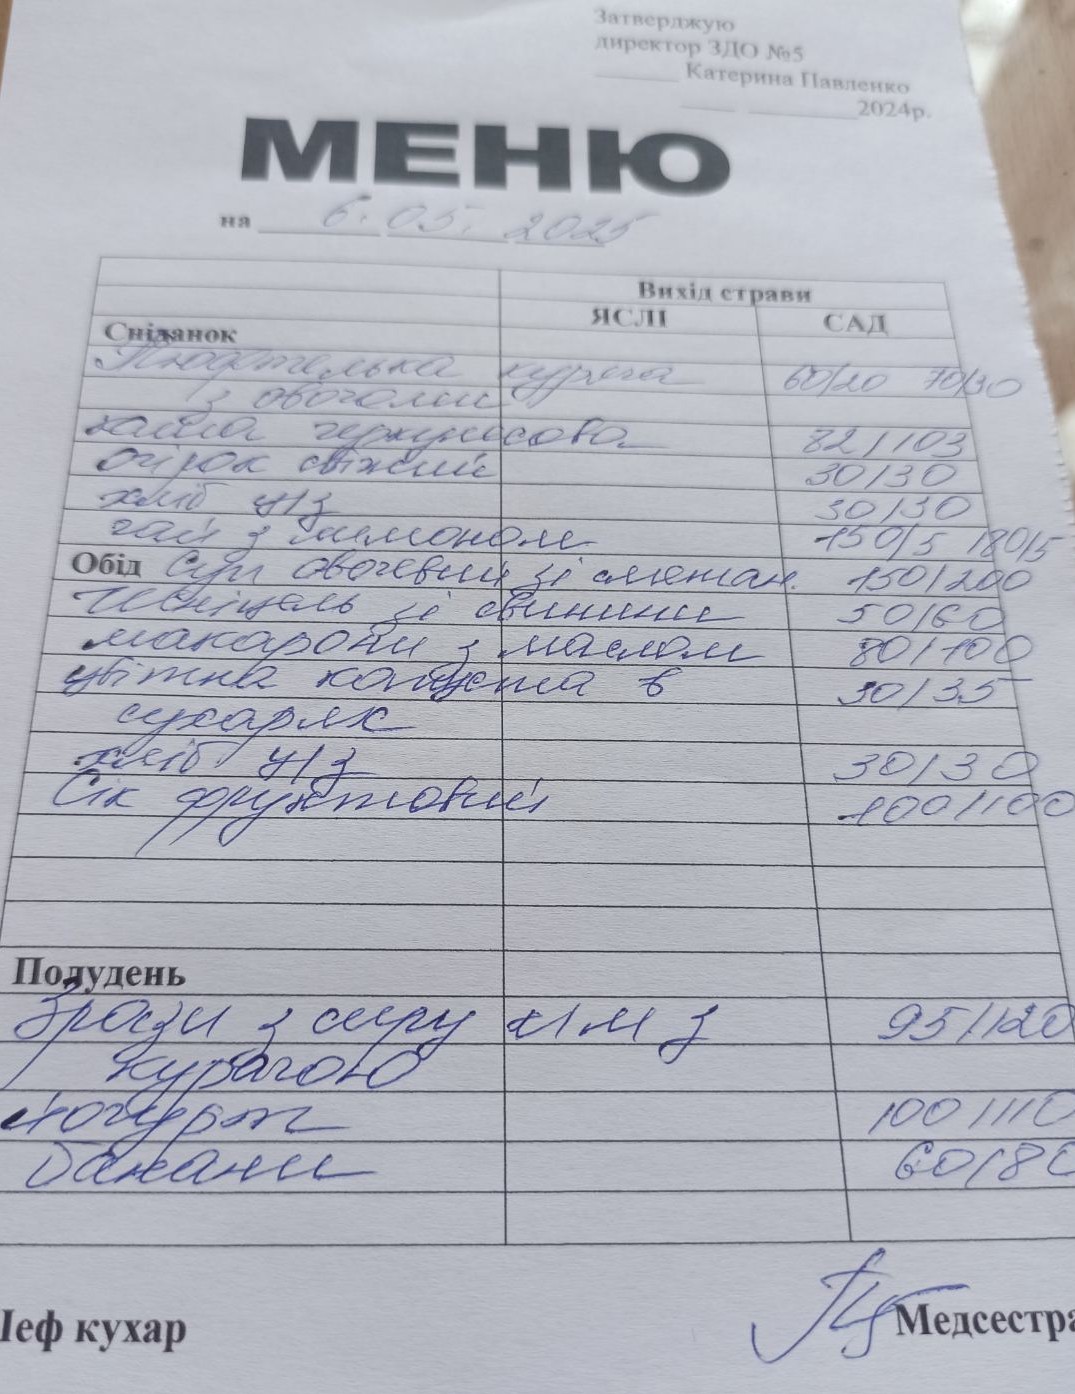 Затверджую
директор ЗДО №5
______ Катерина Павленко
____ ________2024р.
МЕНЮ
на 6. 05. 2025
Вихід страви
ЯСЛІ САД
Сніданок
Тюфтелька куряча 60/20 70/30
з овочами
каша геркулесова 82/103
огірок свіжий 30/30
хліб ц/з 30/30
чай з лимоном 150/5 180/5
Обід Суп овочевий зі сметан. 150/200
Шніцель зі свинини 50/60
макарони з маслом 80/100
цвітна капуста в 30/35
сухарях
хліб ц/з 30/30
Сік фруктовий 100/100
Полудень
Зрази з сиру к/м з 95/120
курагою
йогурт 100/110
банани 60/80
Шеф кухар Медсестра